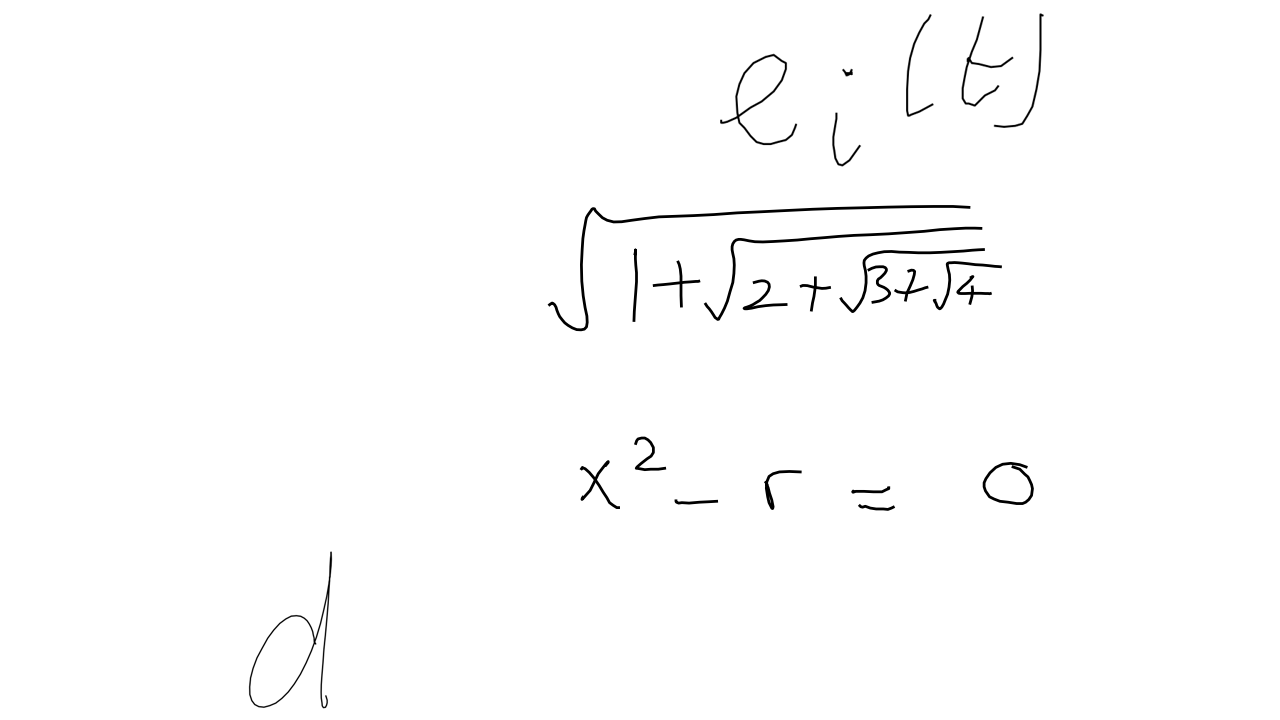 e_i(t)
√(1+√(2+√(3+√4)))
x² - r = 0
d